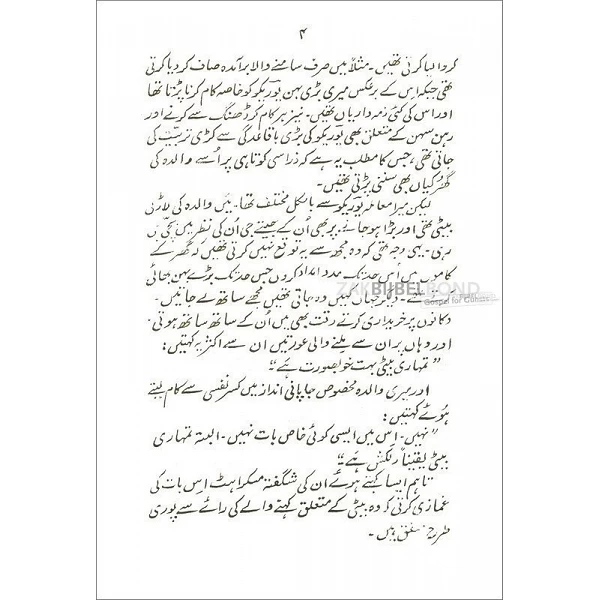 ۴
کروا لیا کرتی تھیں۔ مثلاً میں صرف سامنے والا برآمدہ صاف کر دیا کرتی
تھی جبکہ اس کے برعکس میری بڑی بہن یوریکو کو خاصہ کام کرنا پڑتا تھا
اور اس کی کئی ذمہ داریاں تھیں۔ نیز ہر کام کو ڈھنگ سے کرنے اور
رہن سہن کے متعلق بھی یوریکو کی بڑی باقاعدگی سے کڑی تربیت کی
جاتی تھی، جس کا مطلب یہ ہے کہ ذرا سی کوتاہی پر اُسے والدہ کی
گھُڑکیاں بھی سننی پڑتی تھیں۔
لیکن میرا معاملہ یوریکو سے بالکل مختلف تھا۔ میں والدہ کی لاڈلی
بیٹی تھی اور بڑا ہو جانے پر بھی اُن کے جیتے جی اُن کی نظر میں بچی ہی
رہی۔ یہی وجہ تھی کہ وہ مجھ سے یہ توقع نہیں کرتی تھیں کہ گھر کے
کاموں میں اُس حد تک مدد کروں جس حد تک بڑے بہن بھائی
جہاں کہیں وہ جاتی تھیں مجھے ساتھ لے جاتیں۔
ZAKBIJBELBOND
Gospel for Guests
دکانوں پر خریداری کرتے وقت بھی میں اُن کے ساتھ ساتھ ہوتی۔
اور وہاں پر ان سے ملنے والی عورتیں ان سے اکثر یہ کہتیں:
”تمہاری بیٹی بہت خوبصورت ہے“
اور میری والدہ مخصوص جاپانی انداز میں کسرِ نفسی سے کام لیتے
ہوئے کہتیں:
”نہیں۔ اس میں ایسی کوئی خاص بات نہیں۔ البتہ تمہاری
بیٹی یقیناً دلکش ہے“
تاہم ایسا کہتے ہوئے ان کی شگفتہ مسکراہٹ اِس بات کی
غمازی کرتی کہ وہ بیٹی کے متعلق کہنے والے کی رائے سے پوری
طرح متفق ہیں۔